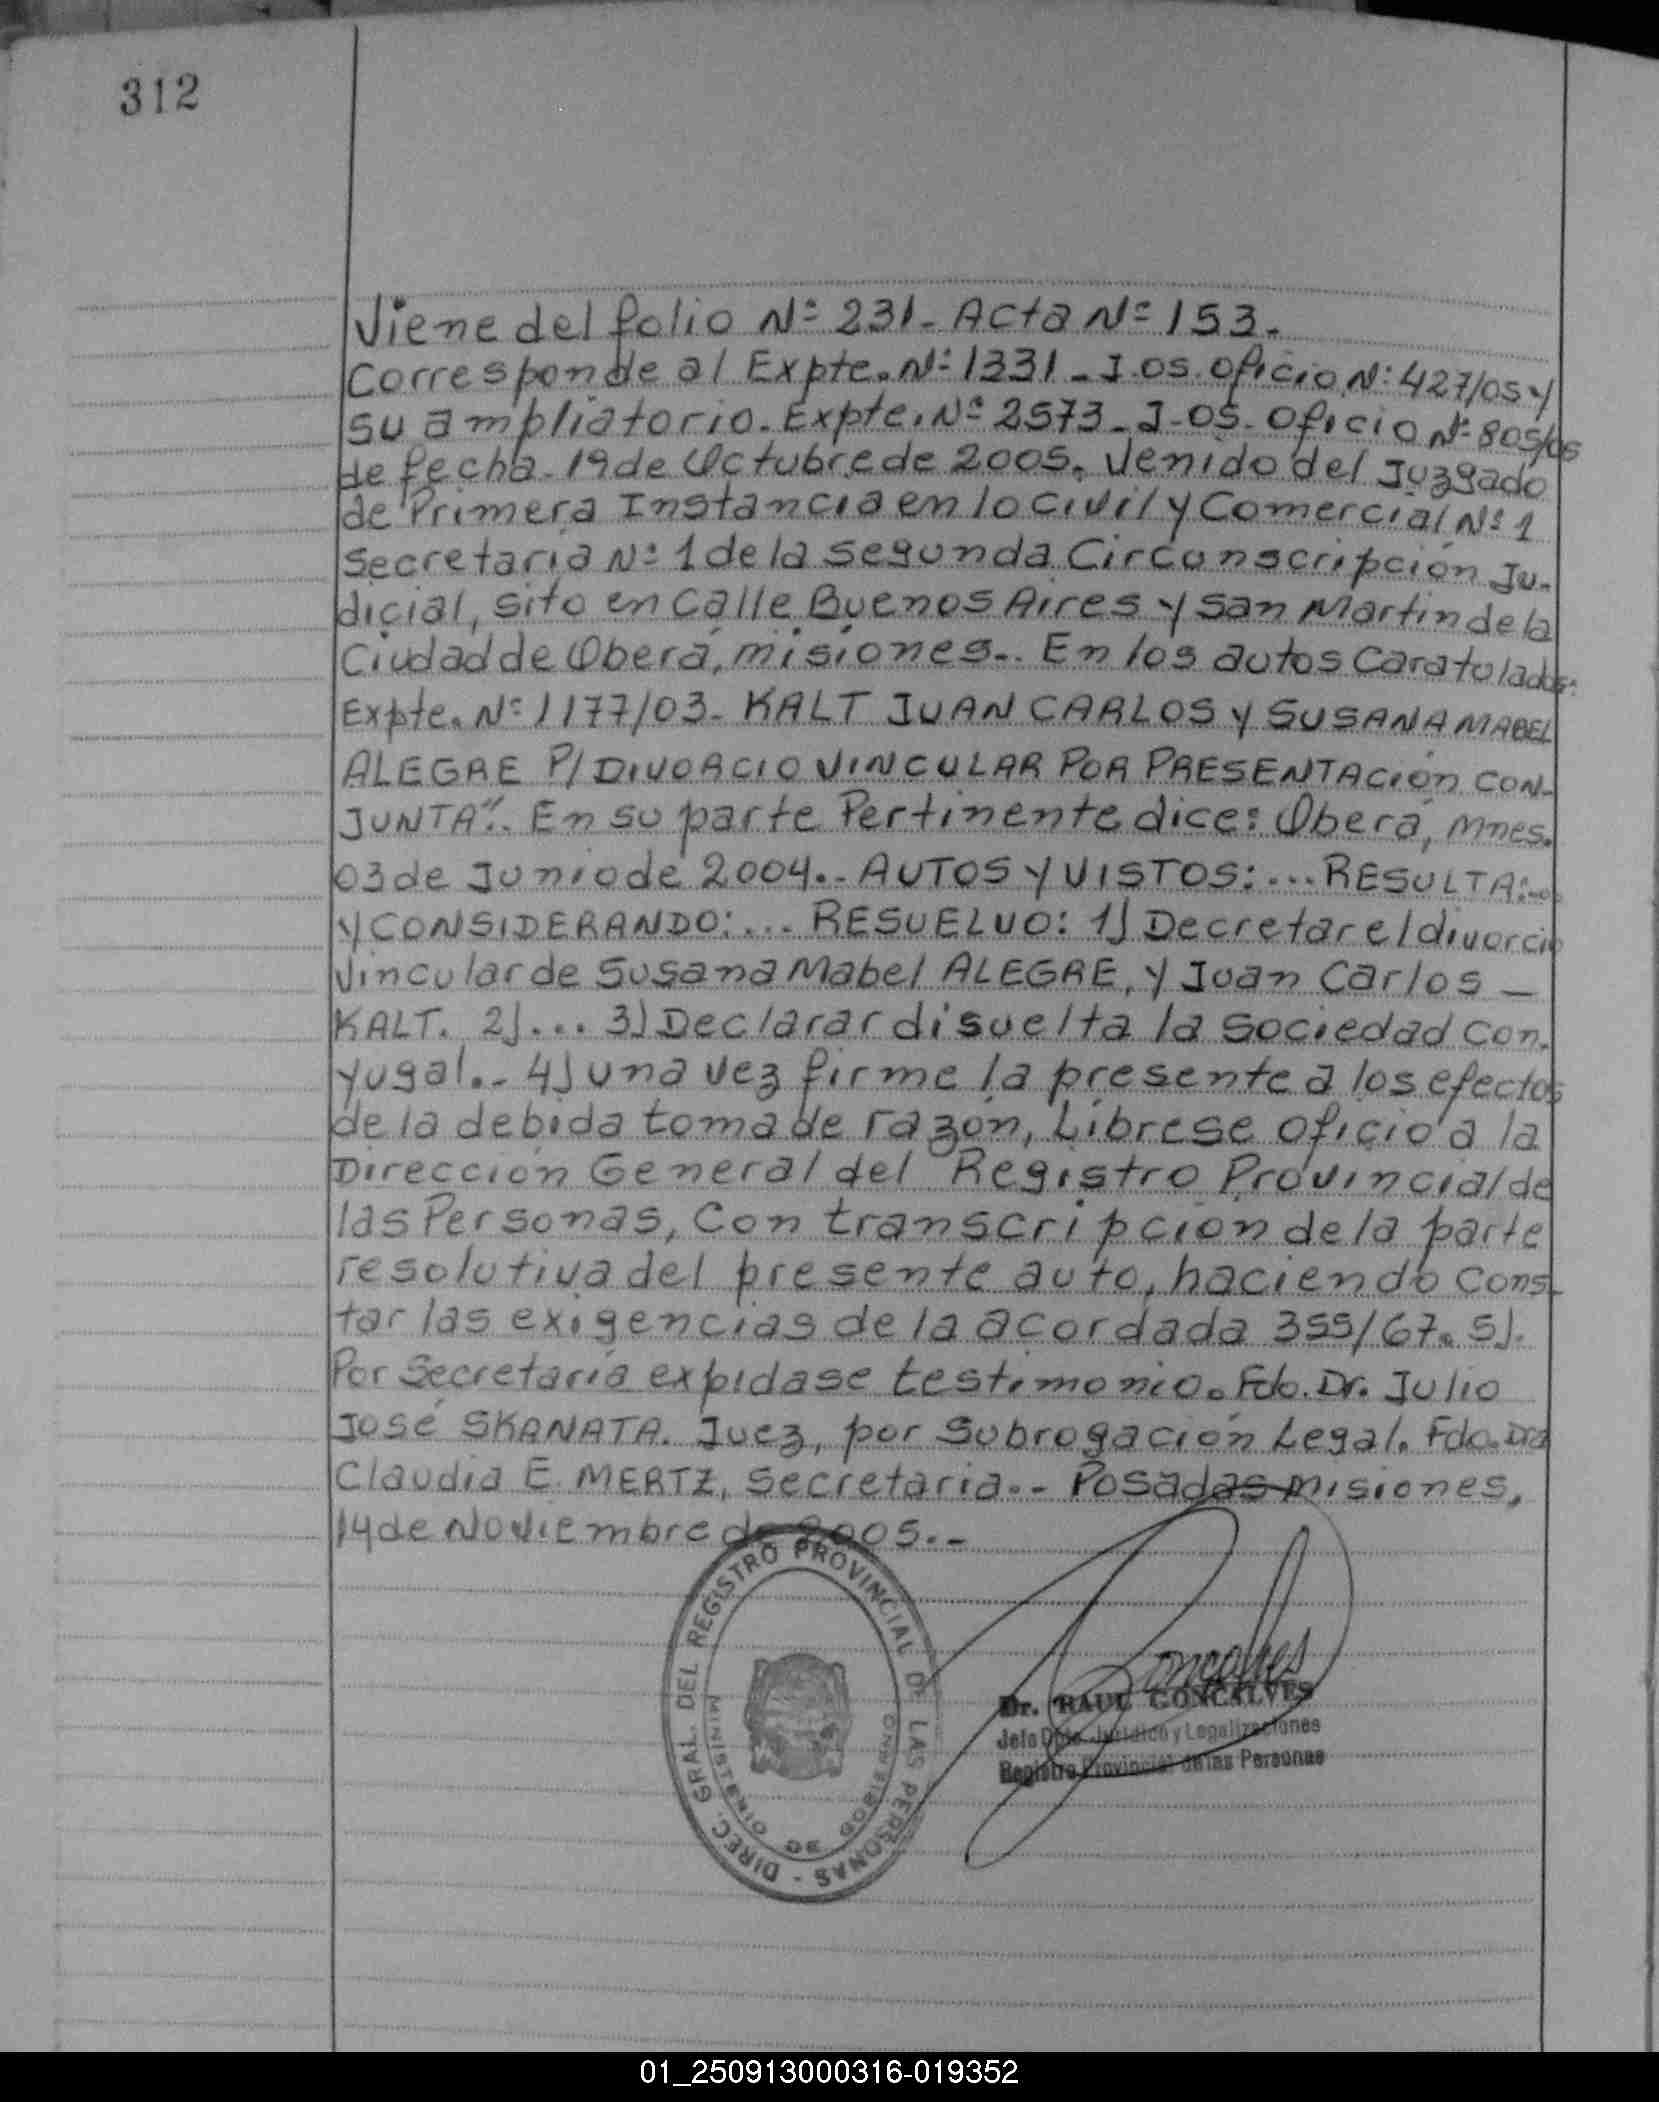 312
Viene del folio Nº 231- Acta Nº 153.
Corresponde al Expte. Nº 1331-J-05. Oficio Nº 427/05 y
su ampliatorio. Expte. Nº 2573-J-05. Oficio Nº 805/05
de fecha. 19 de Octubre de 2005. Venido del Juzgado
de Primera Instancia en lo Civil y Comercial Nº 1
Secretaría Nº 1 de la Segunda Circunscripción Ju-
dicial, sito en Calle Buenos Aires y San Martín de la
Ciudad de Oberá, Misiones.- En los autos Caratulados:
Expte. Nº 1177/03- KALT JUAN CARLOS y SUSANA MABEL
ALEGRE P/ DIVORCIO VINCULAR POR PRESENTACIÓN CON-
JUNTA".- En su parte Pertinente dice: Oberá, Mnes.
03 de Junio de 2004.- AUTOS Y VISTOS: ... RESULTA:...
Y CONSIDERANDO: ... RESUELVO: 1) Decretar el divorcio
Vincular de Susana Mabel ALEGRE, y Juan Carlos -
KALT. 2)... 3) Declarar disuelta la Sociedad Con-
yugal.- 4) una vez firme la presente a los efectos
de la debida toma de razón, Líbrese oficio a la
Dirección General del Registro Provincial de
las Personas, Con transcripción de la parte
resolutiva del presente auto, haciendo Cons-
tar las exigencias de la acordada 355/67. 5).
Por Secretaría expídase testimonio. Fdo. Dr. Julio
José SKANATA. Juez, por Subrogación Legal. Fdo. Dra
Claudia E. MERTZ, Secretaria.- Posadas Misiones,
14 de Noviembre de 2005.-
DIREC. GRAL. DEL REGISTRO PROVINCIAL DE LAS PERSONAS -
MINISTERIO DE GOBIERNO
Goncalves
Dr. RAUL GONCALVES
Jefe Dpto. Jurídico y Legalizaciones
Registro Provincial de las Personas
01_250913000316-019352